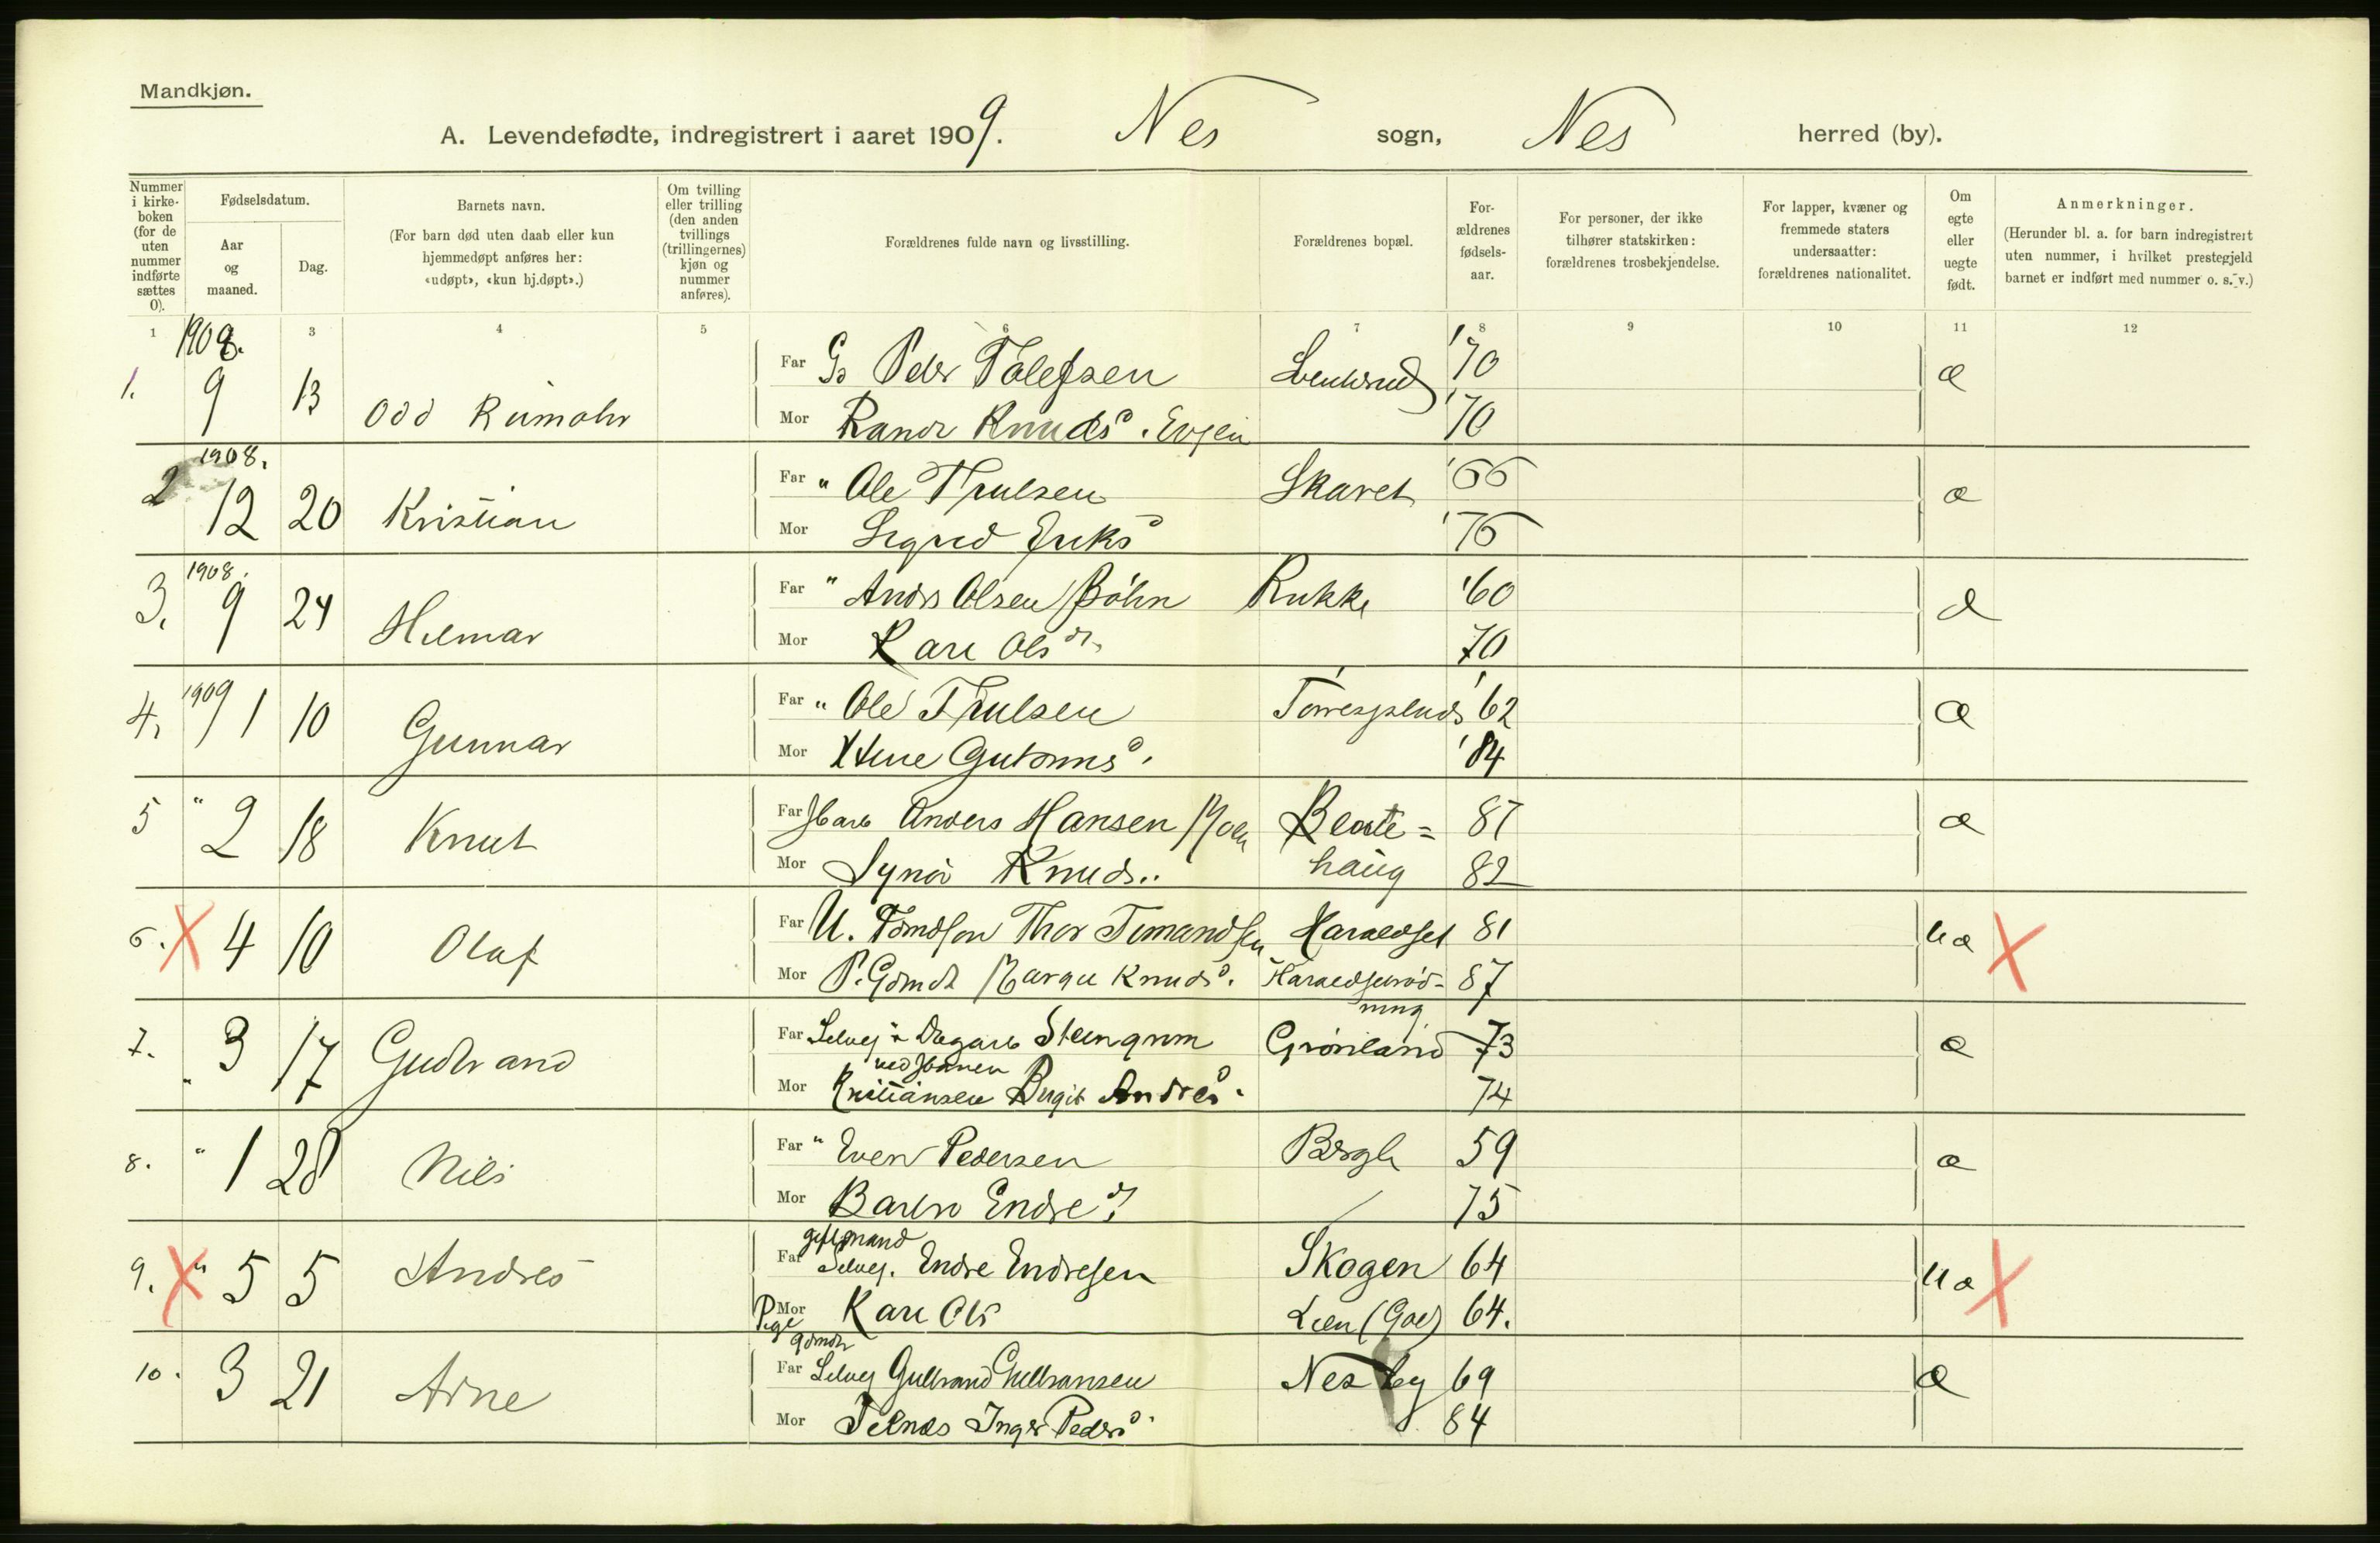 Mandkjøn.
A. Levendefødte, indregistrert i aaret 1909. Nes sogn, Nes herred (by).
Nummer i kirke- boken (for de uten nummer indførte sættes 0).
Fødselsdatum.
Aar og maaned.
Dag.
Barnets navn.
(For barn død uten daab eller kun hjemmedøpt anføres her: «udøpt», «kun hj.døpt».)
Om tvilling eller trilling (den anden tvillings (trillingernes) kjøn og nummer anføres).
Forældrenes fulde navn og livsstilling.
Forældrenes bopæl.
For- ældrenes fødsels- aar.
For personer, der ikke tilhører statskirken: forældrenes trosbekjendelse.
For lapper, kvæner og fremmede staters undersaatter: forældrenes nationalitet.
Om egte eller uegte født.
Anmerkninger.
(Herunder bl. a. for barn indregistrert uten nummer, i hvilket prestegjeld barnet er indført med nummer o. s. v.)
1 3 4 5 6 7 8 9 10 11 12
1908.
Far Peder Tolefsen '70 æ
1. 9 13 Odd Rumohr
Mor Randi Knudsd. Evjen '70
1908.
Far " Ole Trulsen Skaret '66 æ
2 12 20 Kristian
Mor Sigrid Eriksd '76
1908.
Far " Anders Olsen Bøhn Rukke '60 æ
3. 9 24 Hilmar
Mor Kari Olsdr. 70
1909
Far " Ole Trulsen '62 æ
4. 1 10 Gunnar
Mor Guttormsd. '84
Far Anders Hansen Moen Beate= 87 æ
5 " 2 18 Knut
Mor Synøv Knuds.. haug 82
Far U. Thor Haraldset 81 uæ X
6. X 4 10 Olaf
Mor P. Gdmdt Margit Knudsd. 87
ning
Far Selvej Steingrim Grønland 73 æ
7. " 3 17 Gudbrand
ved Banen
Mor Kristiansen Birgit Andresd. 74
Far " Even Pedersen Bergh 59 æ
8. " 1 28 Nils
Mor Barbro Endred. 75
gift mand
Far Selvej. Endre Endresen Skogen 64 uæ X
9. X " 5 5 Andres
Pige Mor Kari Ols Lien (Gol) 64.
gdmdt
Far Selvej Gulbrand Gulbransen Nesby 69 æ
10. 3 21 Arne
Mor Inger Pedersd. 84